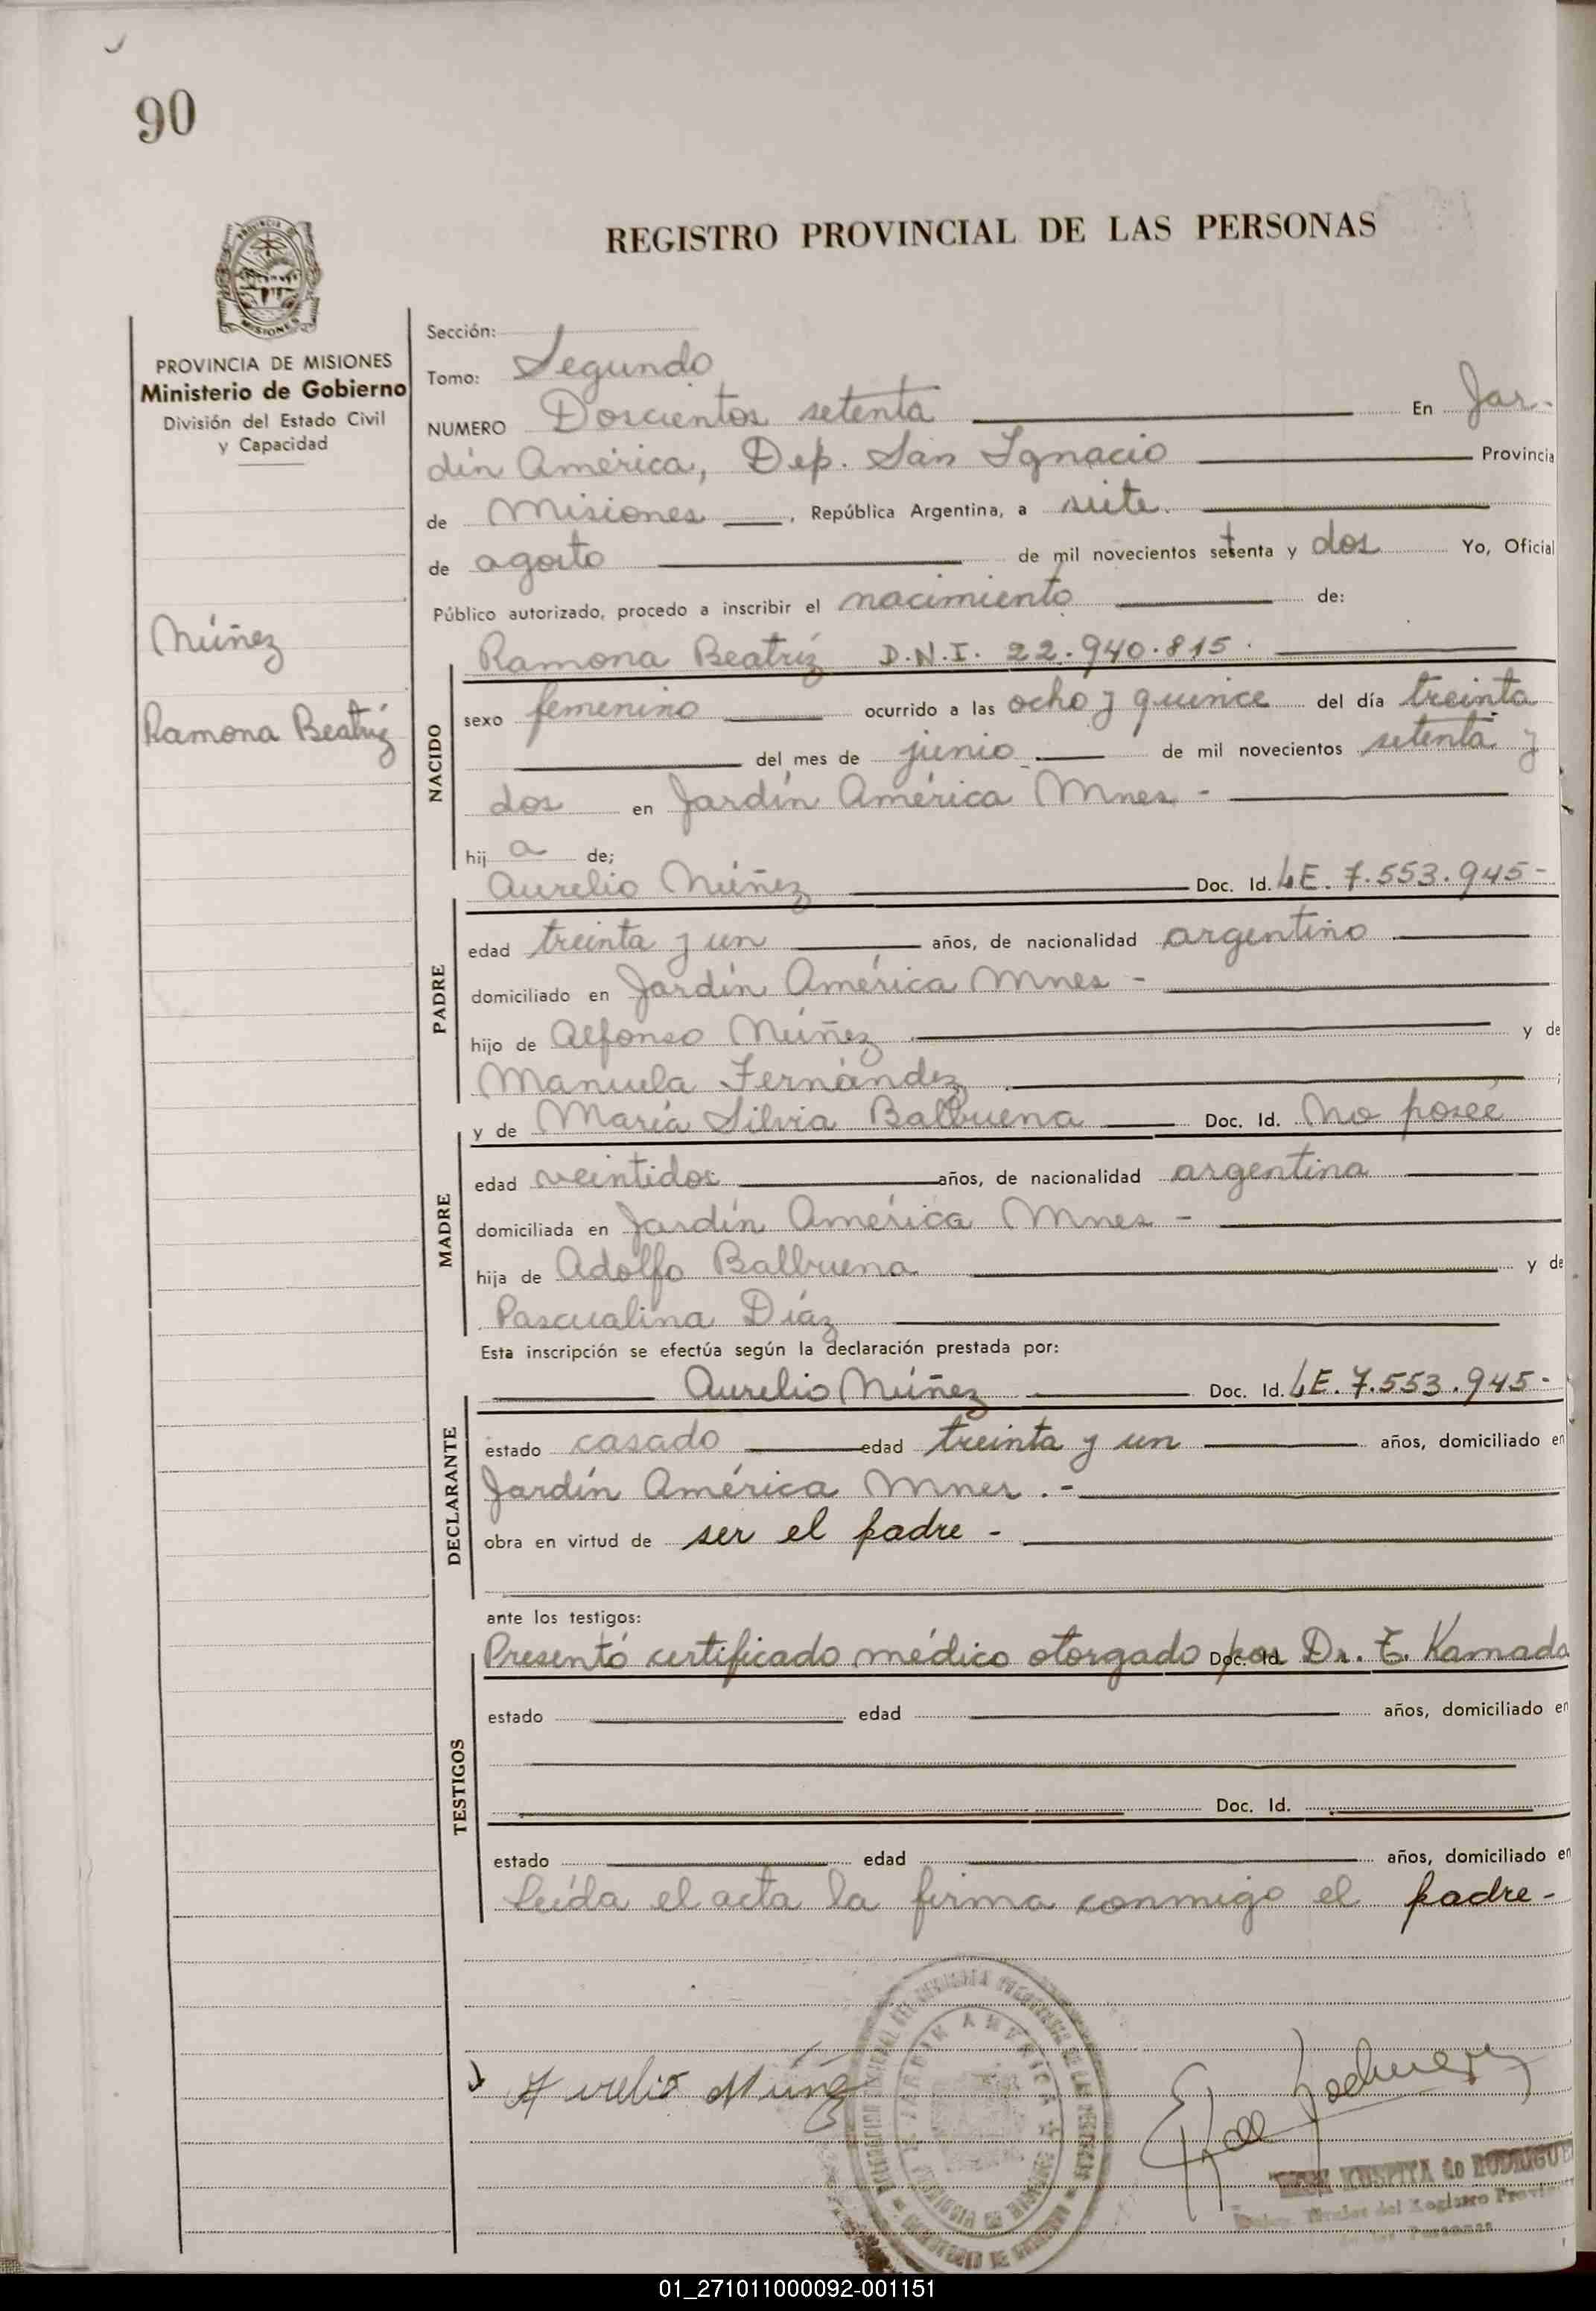 90
REGISTRO PROVINCIAL DE LAS PERSONAS
PROVINCIA DE MISIONES
Ministerio de Gobierno
División del Estado Civil
y Capacidad
Núñez
Ramona Beatríz
Sección:
Tomo: Segundo
NUMERO Doscientos setenta En Jar-
dín América, Dep. San Ignacio Provincia
de Misiones, República Argentina, a siete
de agosto de mil novecientos setenta y dos Yo, Oficial
Público autorizado, procedo a inscribir el nacimiento de:
Ramona Beatríz D.N.I. 22.940.815.
NACIDO
sexo femenino ocurrido a las ocho y quince del día treinta
del mes de junio de mil novecientos setenta y
dos en Jardín América Mnes -
hij a de;
Aurelio Núñez Doc. Id. LE. 7.553.945-
PADRE
edad treinta y un años, de nacionalidad argentino
domiciliado en Jardín América Mnes -
hijo de Alfonso Núñez y de
Manuela Fernández ;
y de María Silvia Balbuena Doc. Id. No poseé
MADRE
edad veintidos años, de nacionalidad argentina
domiciliada en Jardín América Mnes -
hija de Adolfo Balbuena y de
Pascualina Díaz
Esta inscripción se efectúa según la declaración prestada por:
Aurelio Núñez Doc. Id. LE. 7.553.945-
DECLARANTE
estado casado edad treinta y un años, domiciliado en
Jardín América Mnes .-
obra en virtud de ser el padre -
ante los testigos:
Presentó certificado médico otorgado Doc. Id. por Dr. T. Kamada
TESTIGOS
estado edad años, domiciliado en
Doc. Id.
estado edad años, domiciliado en
Leída el acta la firma conmigo el padre-
Aurelio Núñez
JARDIN AMERICA
KUSPITA de RODRIGUE
del Registro Provin
de las Personas
01_271011000092-001151